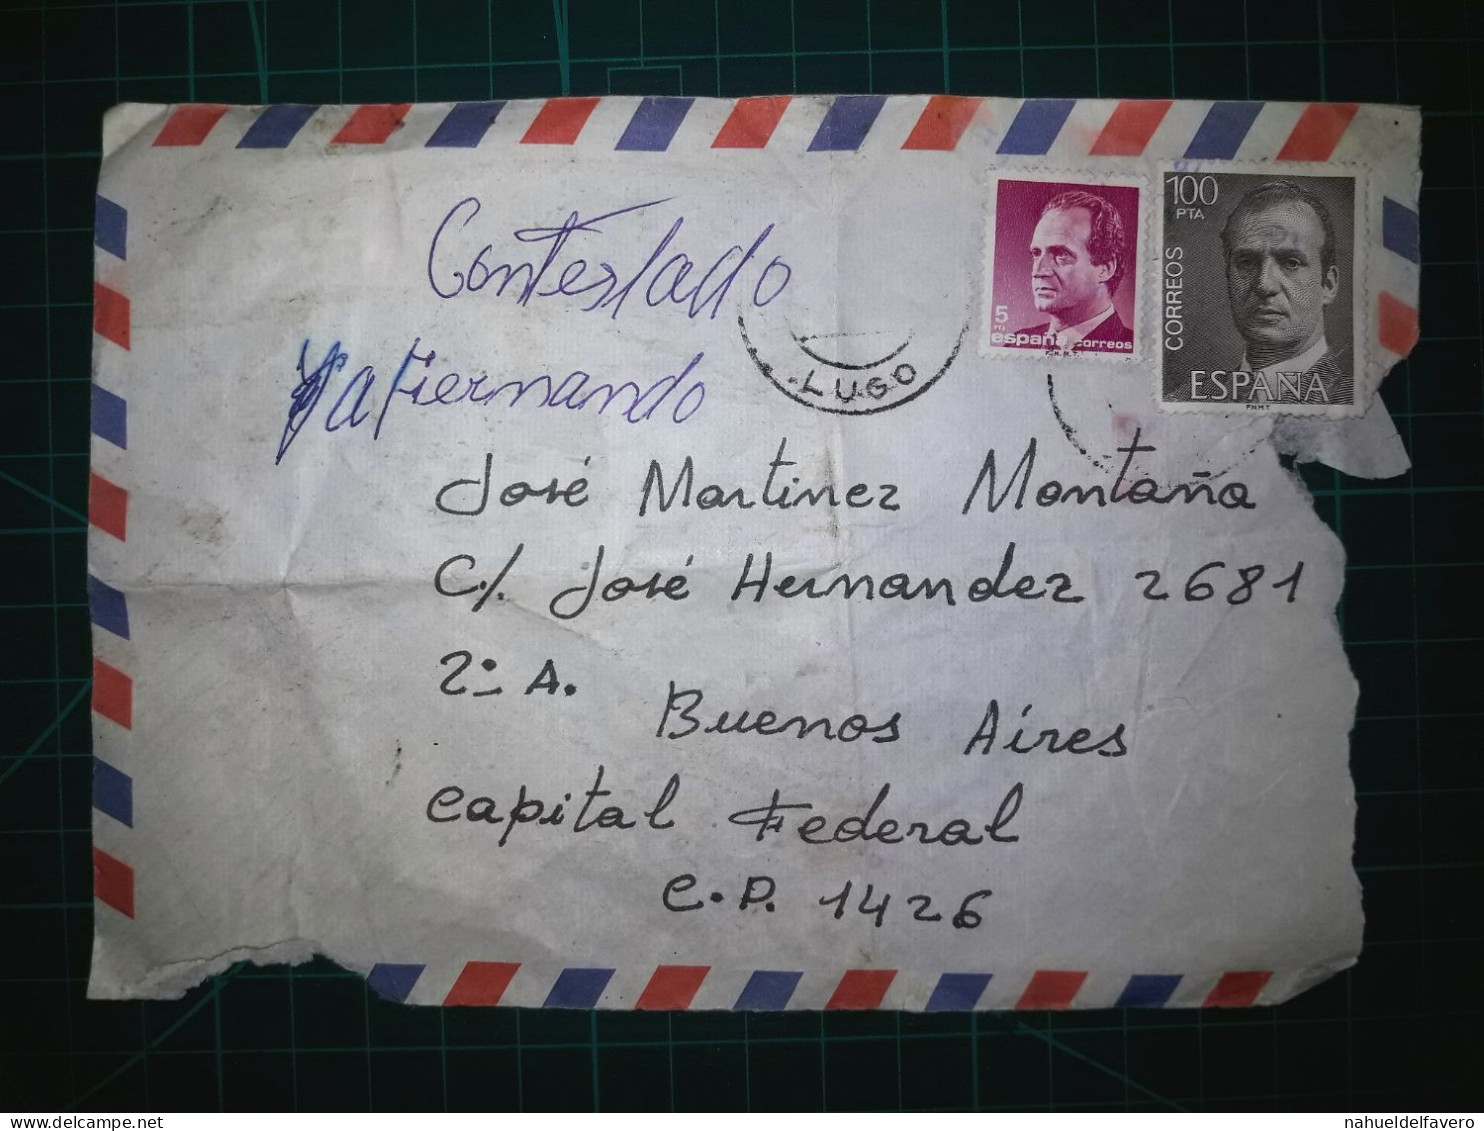 100
PTA
CORREOS
ESPAÑA
F.N.M.T
5
PTA
españa correos
F.N.M.T.
Contestado
LUGO
Ya Fiernando
José Martinez Montaña
C/. José Hernandez 2681
2º A.
Buenos Aires
Capital Federal
C.P. 1426
delcampe.net
nahueldelfavero